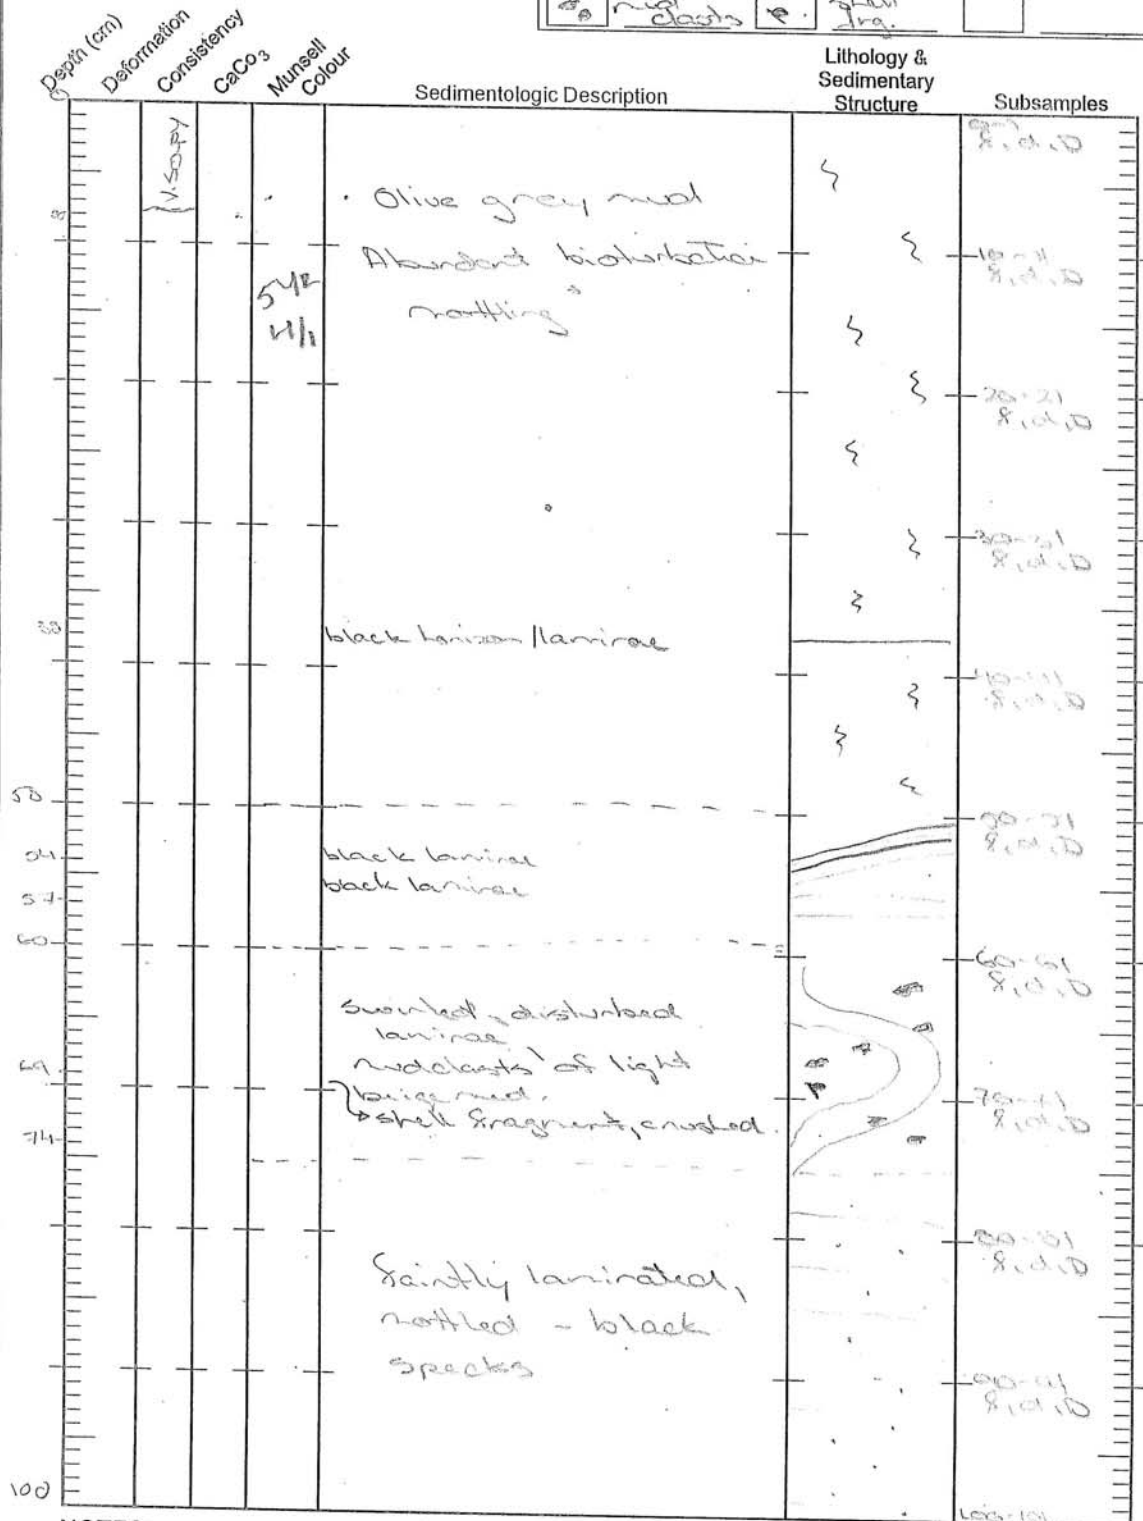 mud
clasts
shell
frg.
Depth (cm)
Deformation
Consistency
CaCo3
Munsell
Colour
Sedimentologic Description
Lithology &
Sedimentary
Structure
Subsamples
0
V. Soupy
8
Olive grey mud
Abundant bioturbation
mottling
5YR
4/1
f, d, D
10-11
f, d, D
20-21
f, d, D
30-31
f, d, D
38
black horizon/laminae
40-41
f, d, D
50
50-51
f, d, D
54
black laminae
57
black laminae
60
60-61
f, d, D
swirled, disturbed
laminae
mudclasts of light
69
beige mud.
shell fragment, crushed.
70-71
f, d, D
74
80-81
f, d, D
faintly laminated,
mottled - black
specks
90-91
f, d, D
100
100-101